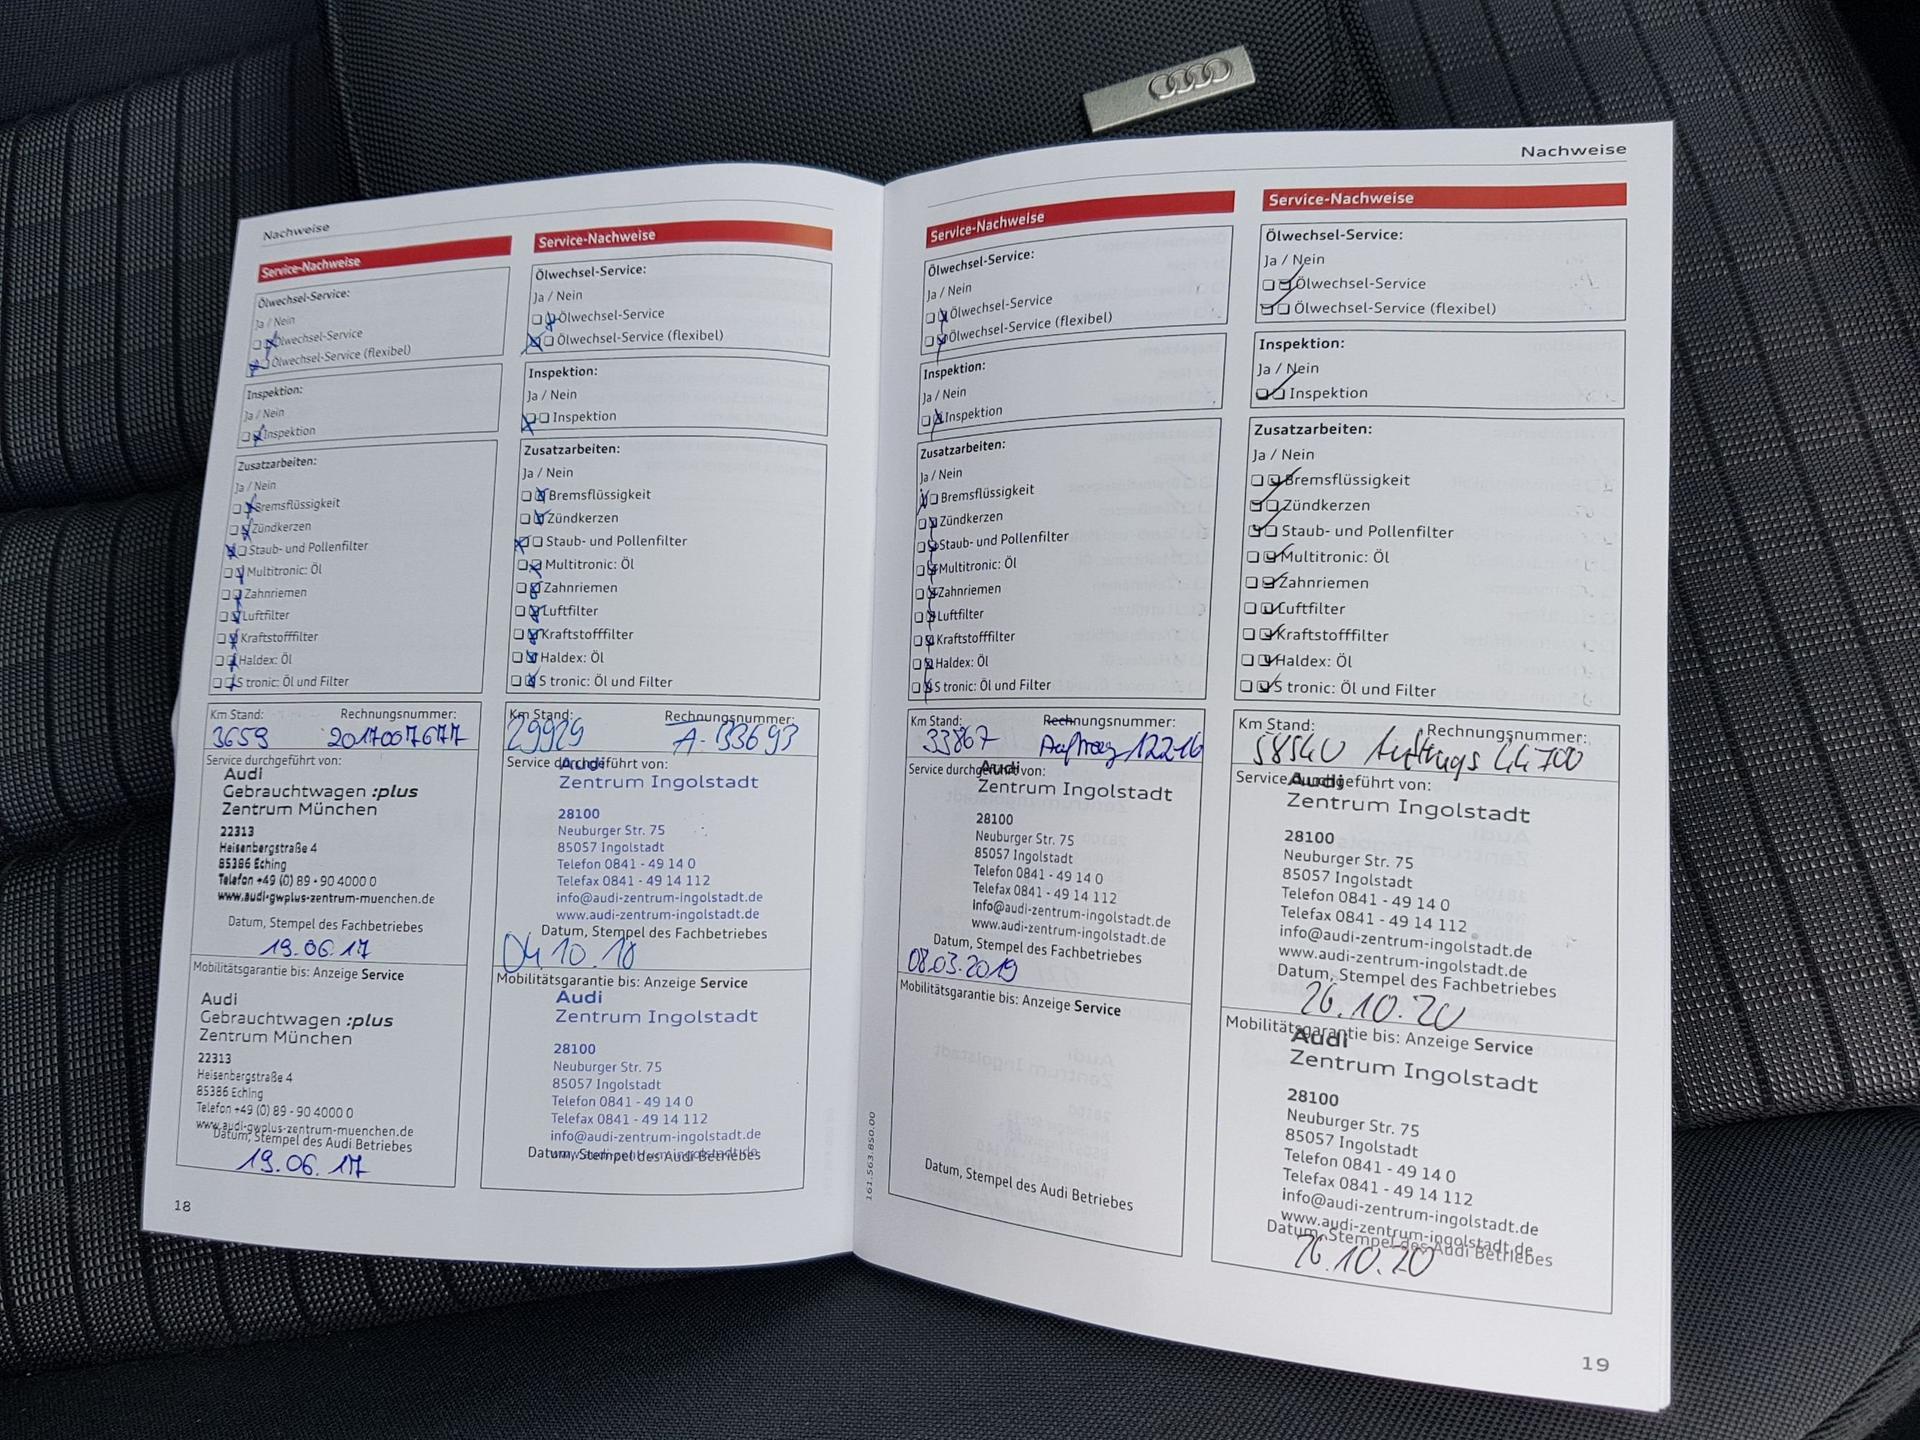 Nachweise
Service-Nachweise
Ölwechsel-Service:
Ja / Nein
Ölwechsel-Service
Ölwechsel-Service (flexibel)
Inspektion:
Ja / Nein
Inspektion
Zusatzarbeiten:
Ja / Nein
Bremsflüssigkeit
Zündkerzen
Staub- und Pollenfilter
Multitronic: Öl
Zahnriemen
Luftfilter
Kraftstofffilter
Haldex: Öl
S tronic: Öl und Filter
Km Stand: Rechnungsnummer:
3659 2017007677
Service durchgeführt von:
Audi
Gebrauchtwagen :plus
Zentrum München
22313
Heisenbergstraße 4
85386 Eching
Telefon +49 (0) 89 - 90 4000 0
www.audi-gwplus-zentrum-muenchen.de
Datum, Stempel des Fachbetriebes
19.06.17
Mobilitätsgarantie bis: Anzeige Service
Audi
Gebrauchtwagen :plus
Zentrum München
22313
Heisenbergstraße 4
85386 Eching
Telefon +49 (0) 89 - 90 4000 0
www.audi-gwplus-zentrum-muenchen.de
Datum, Stempel des Audi Betriebes
19.06.17
18
Service-Nachweise
Ölwechsel-Service:
Ja / Nein
Ölwechsel-Service
Ölwechsel-Service (flexibel)
Inspektion:
Ja / Nein
Inspektion
Zusatzarbeiten:
Ja / Nein
Bremsflüssigkeit
Zündkerzen
Staub- und Pollenfilter
Multitronic: Öl
Zahnriemen
Luftfilter
Kraftstofffilter
Haldex: Öl
S tronic: Öl und Filter
Km Stand: Rechnungsnummer:
29929 A-133693
Service durchgeführt von:
Audi
Zentrum Ingolstadt
28100
Neuburger Str. 75
85057 Ingolstadt
Telefon 0841 - 49 14 0
Telefax 0841 - 49 14 112
info@audi-zentrum-ingolstadt.de
www.audi-zentrum-ingolstadt.de
Datum, Stempel des Fachbetriebes
04.10.18
Mobilitätsgarantie bis: Anzeige Service
Audi
Zentrum Ingolstadt
28100
Neuburger Str. 75
85057 Ingolstadt
Telefon 0841 - 49 14 0
Telefax 0841 - 49 14 112
info@audi-zentrum-ingolstadt.de
www.audi-zentrum-ingolstadt.de
Datum, Stempel des Audi Betriebes
161.563.850.00
Service-Nachweise
Ölwechsel-Service:
Ja / Nein
Ölwechsel-Service
Ölwechsel-Service (flexibel)
Inspektion:
Ja / Nein
Inspektion
Zusatzarbeiten:
Ja / Nein
Bremsflüssigkeit
Zündkerzen
Staub- und Pollenfilter
Multitronic: Öl
Zahnriemen
Luftfilter
Kraftstofffilter
Haldex: Öl
S tronic: Öl und Filter
Km Stand: Rechnungsnummer:
33867 Auftrag 12216
Service durchgeführt von:
Audi
Zentrum Ingolstadt
28100
Neuburger Str. 75
85057 Ingolstadt
Telefon 0841 - 49 14 0
Telefax 0841 - 49 14 112
info@audi-zentrum-ingolstadt.de
www.audi-zentrum-ingolstadt.de
Datum, Stempel des Fachbetriebes
08.03.2019
Mobilitätsgarantie bis: Anzeige Service
Datum, Stempel des Audi Betriebes
Nachweise
Service-Nachweise
Ölwechsel-Service:
Ja / Nein
Ölwechsel-Service
Ölwechsel-Service (flexibel)
Inspektion:
Ja / Nein
Inspektion
Zusatzarbeiten:
Ja / Nein
Bremsflüssigkeit
Zündkerzen
Staub- und Pollenfilter
Multitronic: Öl
Zahnriemen
Luftfilter
Kraftstofffilter
Haldex: Öl
S tronic: Öl und Filter
Km Stand: Rechnungsnummer:
58540 Auftrags 44700
Service durchgeführt von:
Audi
Zentrum Ingolstadt
28100
Neuburger Str. 75
85057 Ingolstadt
Telefon 0841 - 49 14 0
Telefax 0841 - 49 14 112
info@audi-zentrum-ingolstadt.de
www.audi-zentrum-ingolstadt.de
Datum, Stempel des Fachbetriebes
26.10.20
Mobilitätsgarantie bis: Anzeige Service
Audi
Zentrum Ingolstadt
28100
Neuburger Str. 75
85057 Ingolstadt
Telefon 0841 - 49 14 0
Telefax 0841 - 49 14 112
info@audi-zentrum-ingolstadt.de
www.audi-zentrum-ingolstadt.de
Datum, Stempel des Audi Betriebes
26.10.20
19